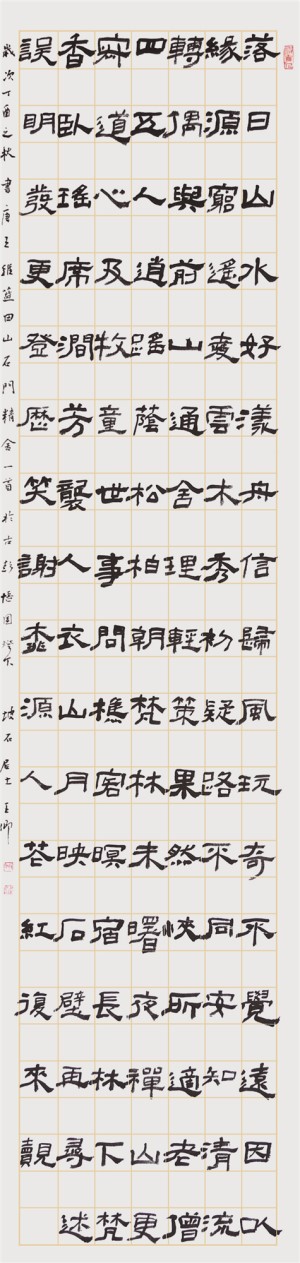 落日山水好漾舟信歸風玩奇不覺遠因以
緣源窮遙爱雲木秀初疑路不同安知清流
轉偶與前山通舍理輕策果然愜所適老僧
四五人逍遙蔭松柏朝梵林未曙夜禪山更
寂道心及牧童世事問樵客暝宿長林下梵
香臥瑤席澗芳襲人衣山月映石壁再尋迷
誤明發更登歷笑謝桃源人花紅復來覿
歲次丁酉之秋書唐王維藍田山石門精舍一首於古彭
石居士王